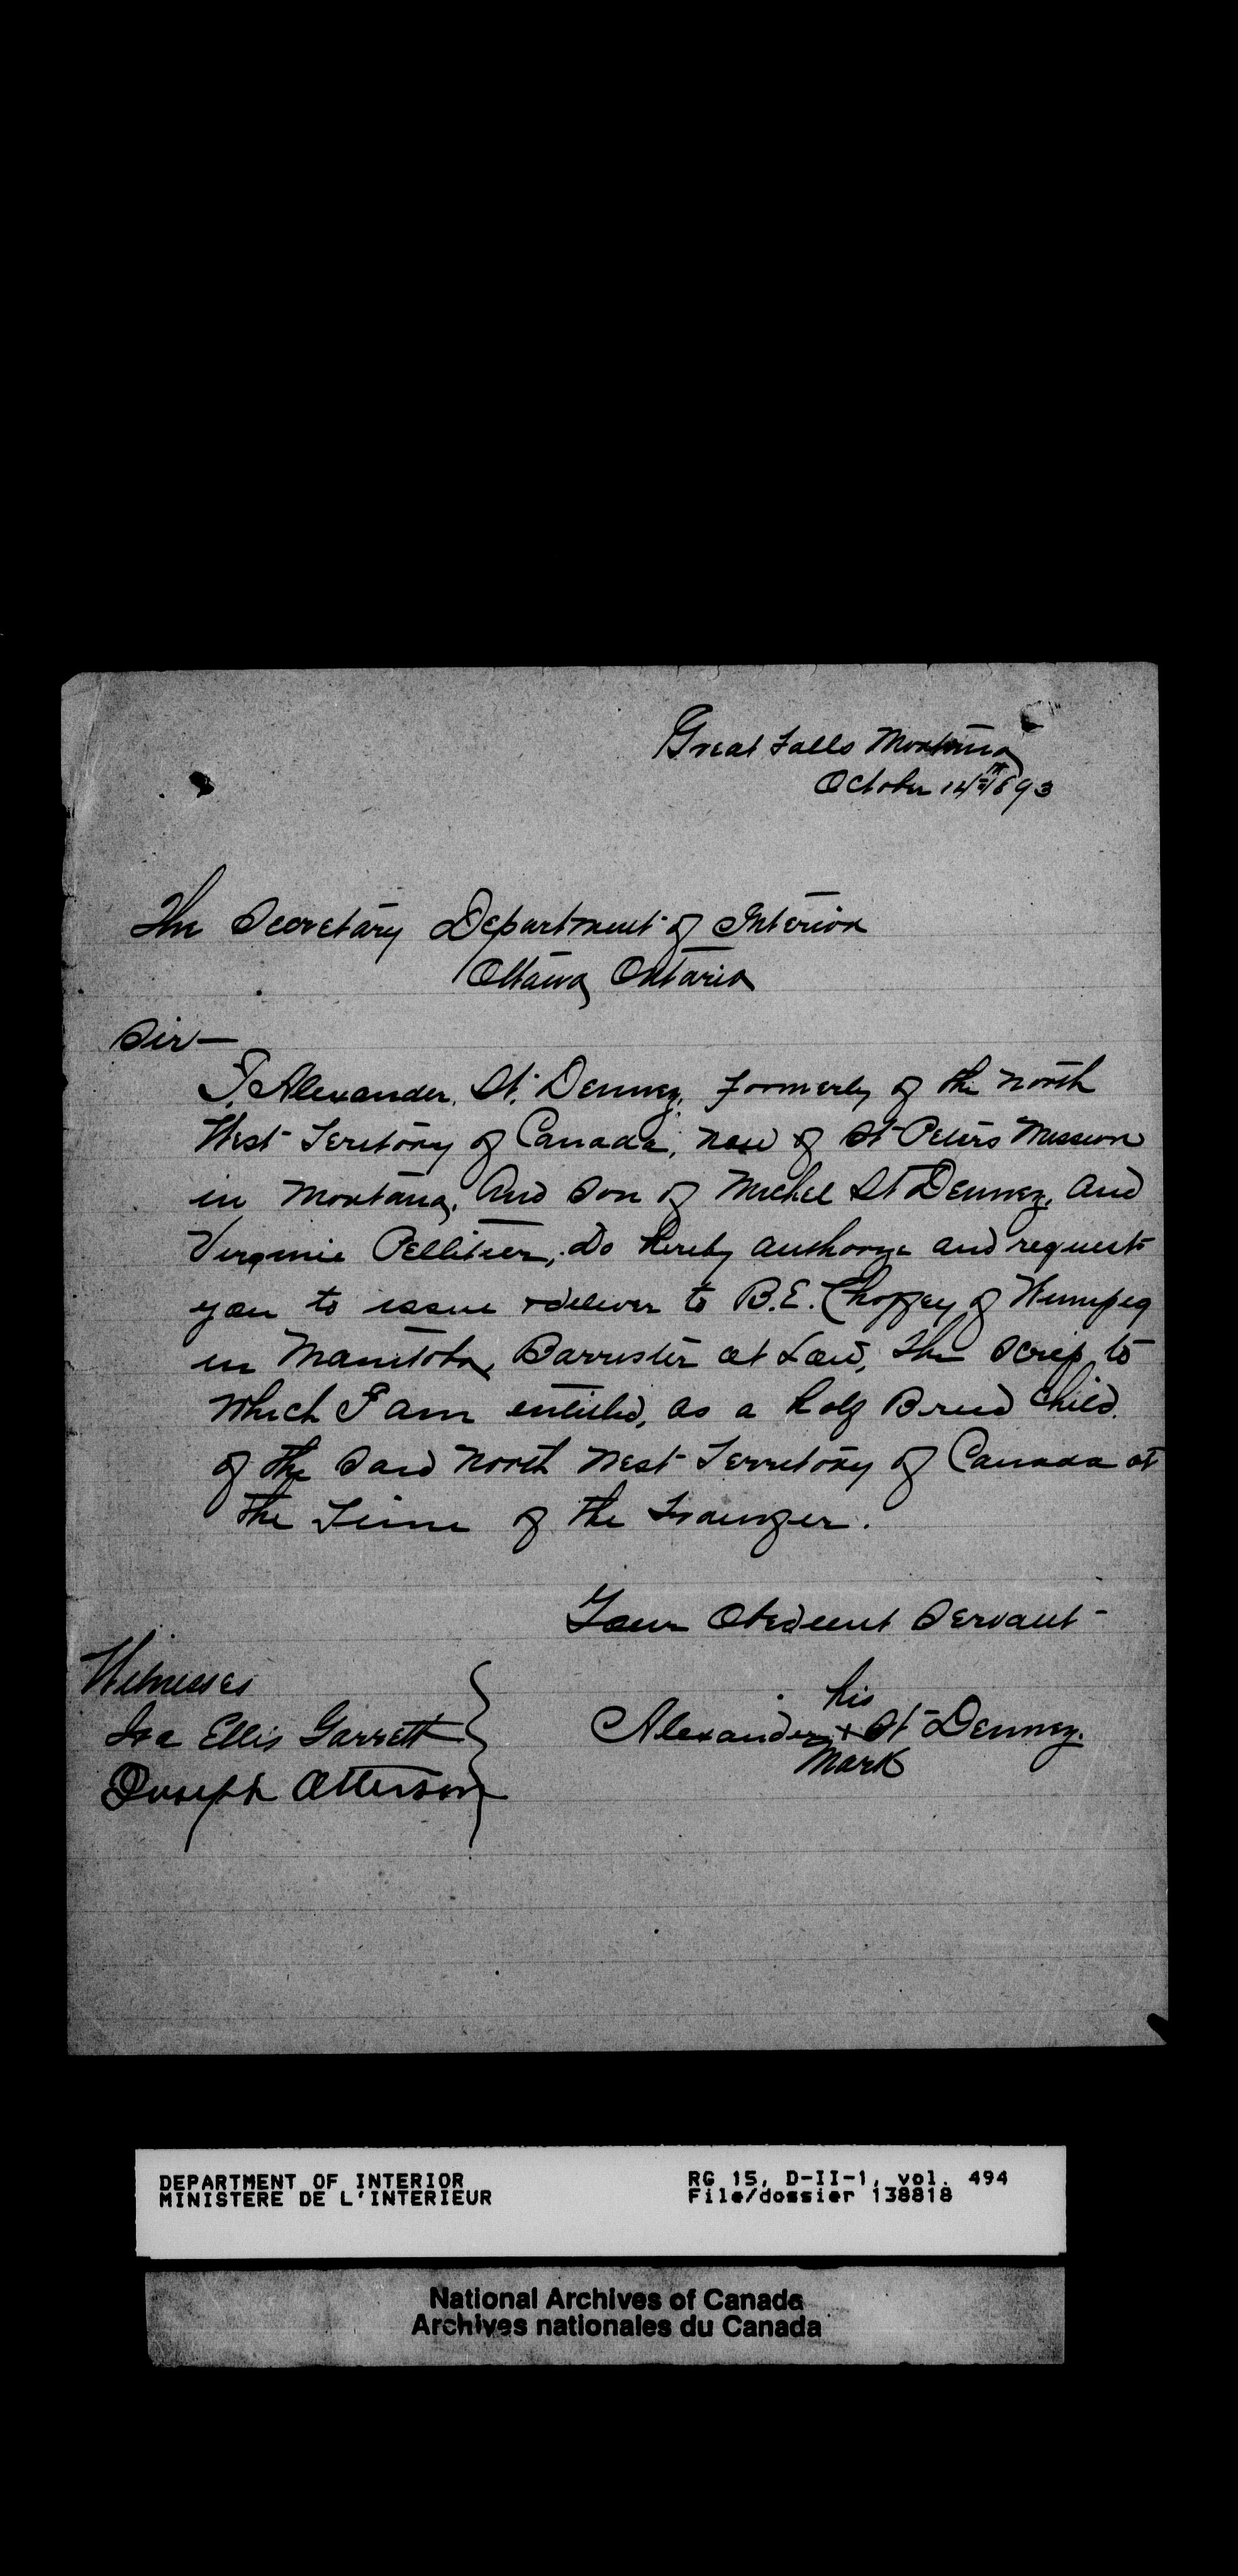 Great Falls Montana
October 14th 1893
The Secretary Department of Interior
Ottawa Ontario
Sir —
I, Alexander St. Denney, formerly of the North
West Teritory of Canada, now of St Peters Mission
in Montana, And Son of Michel St Denney, and
Virginie Pellitier, do hereby authorize and request
you to issue & deliver to B.E. Chaffey of Winnipeg
in Manitoba, Barrister at Law, The Scrip to
which I am entitled, as a half Breed Child.
of the said North West Territory of Canada at
the Time of the Transfer.
Your Obedient Servant
Witnesses
his
Ira Ellis Garrett
Alexander + St Denney.
mark
Joseph Otterson
DEPARTMENT OF INTERIOR
MINISTERE DE L'INTERIEUR
RG 15, D-II-1, vol. 494
File/dossier 138818
National Archives of Canada
Archives nationales du Canada